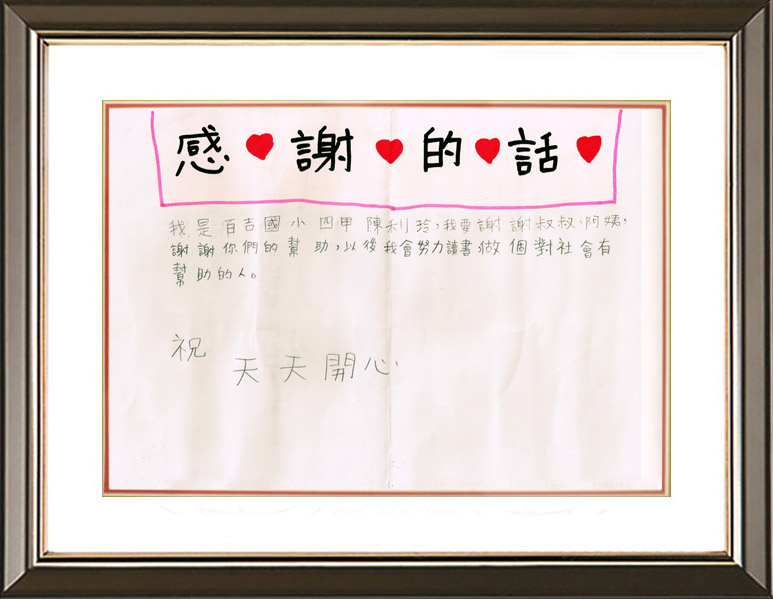 感❤謝❤的❤話❤
我是百吉國小四甲陳利玲,我要謝謝叔叔、阿姨,
謝謝你們的幫助,以後我會努力讀書做個對社會有
幫助的人。
祝
天天開心